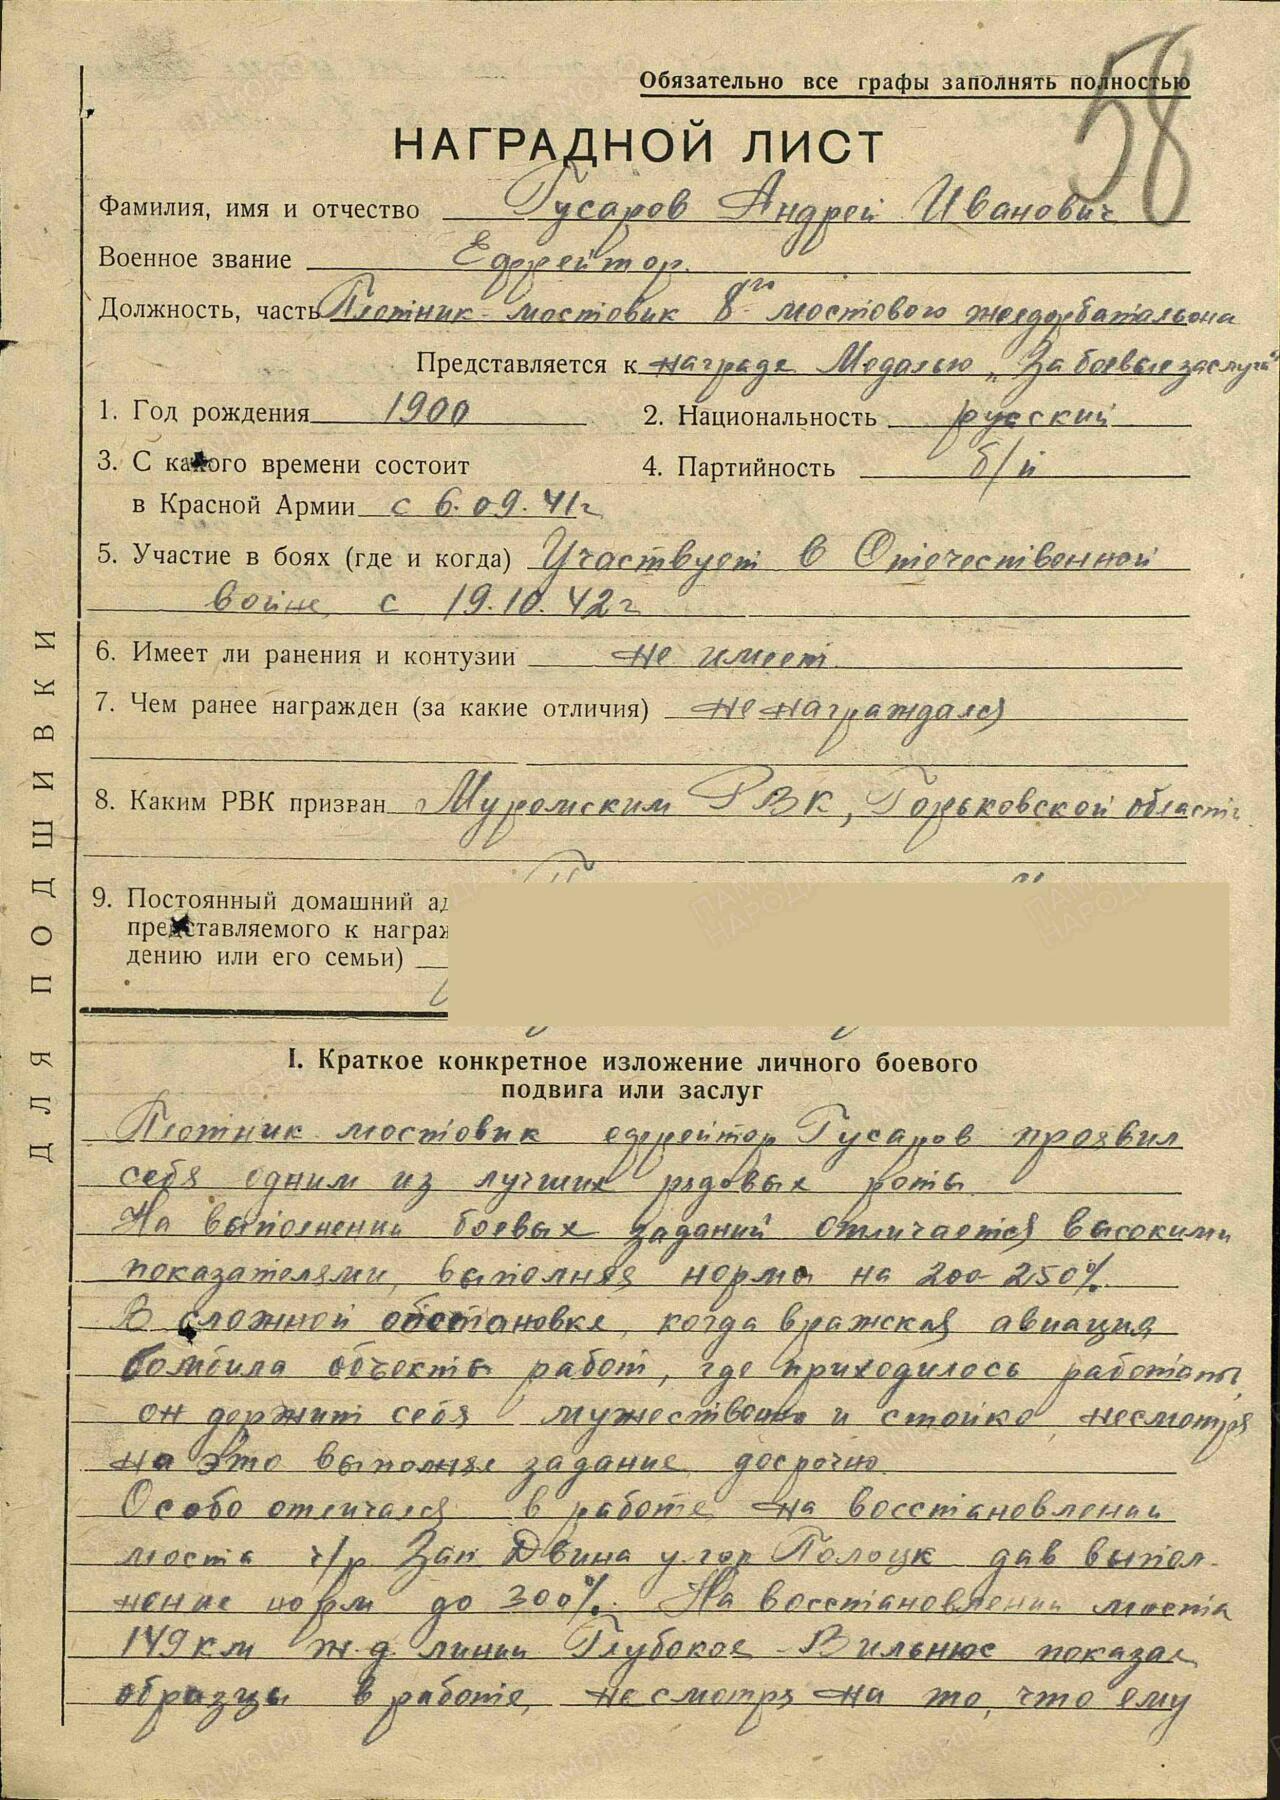 58
Обязательно все графы заполнять полностью
НАГРАДНОЙ ЛИСТ
Фамилия, имя и отчество Гусаров Андрей Иванович
Военное звание Ефрейтор.
Должность, часть Плотник-мостовик 8го мостового желдорбатальона
Представляется к награде Медалью „За боевые заслуги"
1. Год рождения 1900 2. Национальность русский
3. С какого времени состоит 4. Партийность б/п
в Красной Армии с 6.09.41г
5. Участие в боях (где и когда) Участвует в Отечественной
войне с 19.10.42г
6. Имеет ли ранения и контузии не имеет.
7. Чем ранее награжден (за какие отличия) не награждался
8. Каким РВК призван Муромским РВК, Горьковской области
9. Постоянный домашний ад
представляемого к награж
дению или его семьи)
ДЛЯ ПОДШИВКИ
I. Краткое конкретное изложение личного боевого
подвига или заслуг
Плотник мостовик ефрейтор Гусаров проявил
себя одним из лучших рядовых роты.
На выполнении боевых заданий отличается высокими
показателями, выполняя нормы на 200-250%.
В сложной обстановке, когда вражская авиация
бомбила объекты работ, где приходилось работать,
он держит себя мужественно и стойко, несмотря
на это выполняя задание досрочно.
Особо отличался в работе на восстановлении
моста ч/р Зап Двина у гор Полоцк дав выпол-
нение норм до 300%. На восстановлении моста
149 км ж.д. линии Глубокое-Вильнюс показал
образцы в работе, несмотря на то, что ему